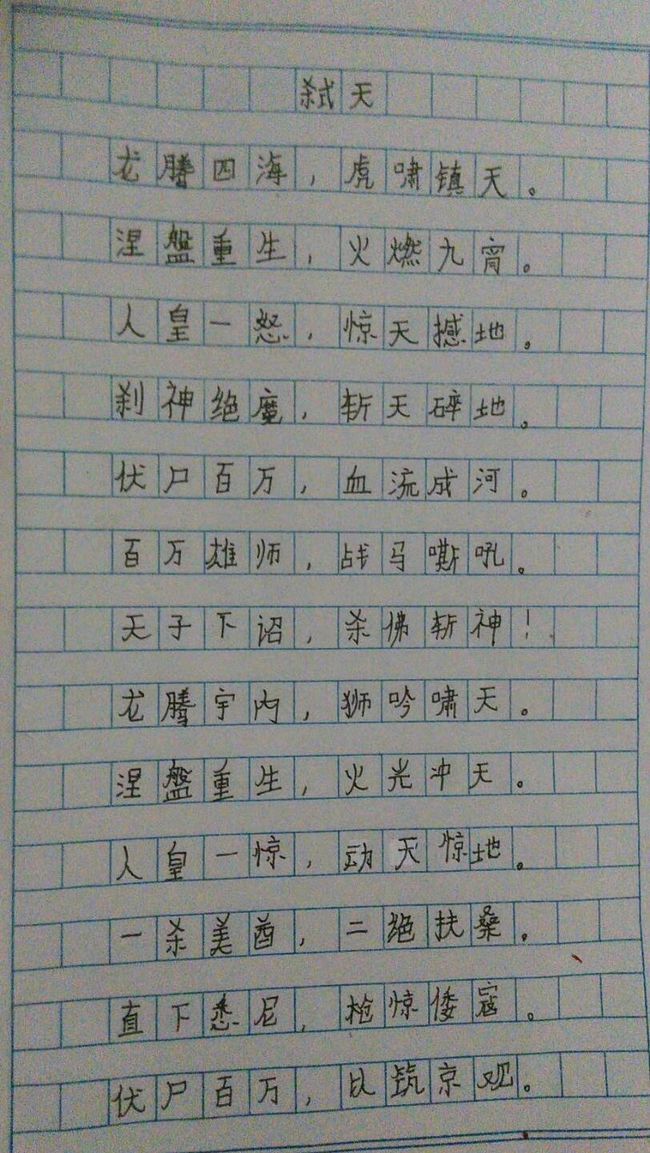 弑天
龙腾四海，虎啸镇天。
涅盘重生，火燃九宵。
人皇一怒，惊天撼地。
刹神绝魔，斩天碎地。
伏尸百万，血流成河。
百万雄师，战马嘶吼。
天子下诏，杀佛斩神！
龙腾宇内，狮吟啸天。
涅盘重生，火光冲天。
人皇一惊，动天惊地。
一杀美酋，二绝扶桑。
直下悉尼，枪惊倭寇。
伏尸百万，以筑京观。